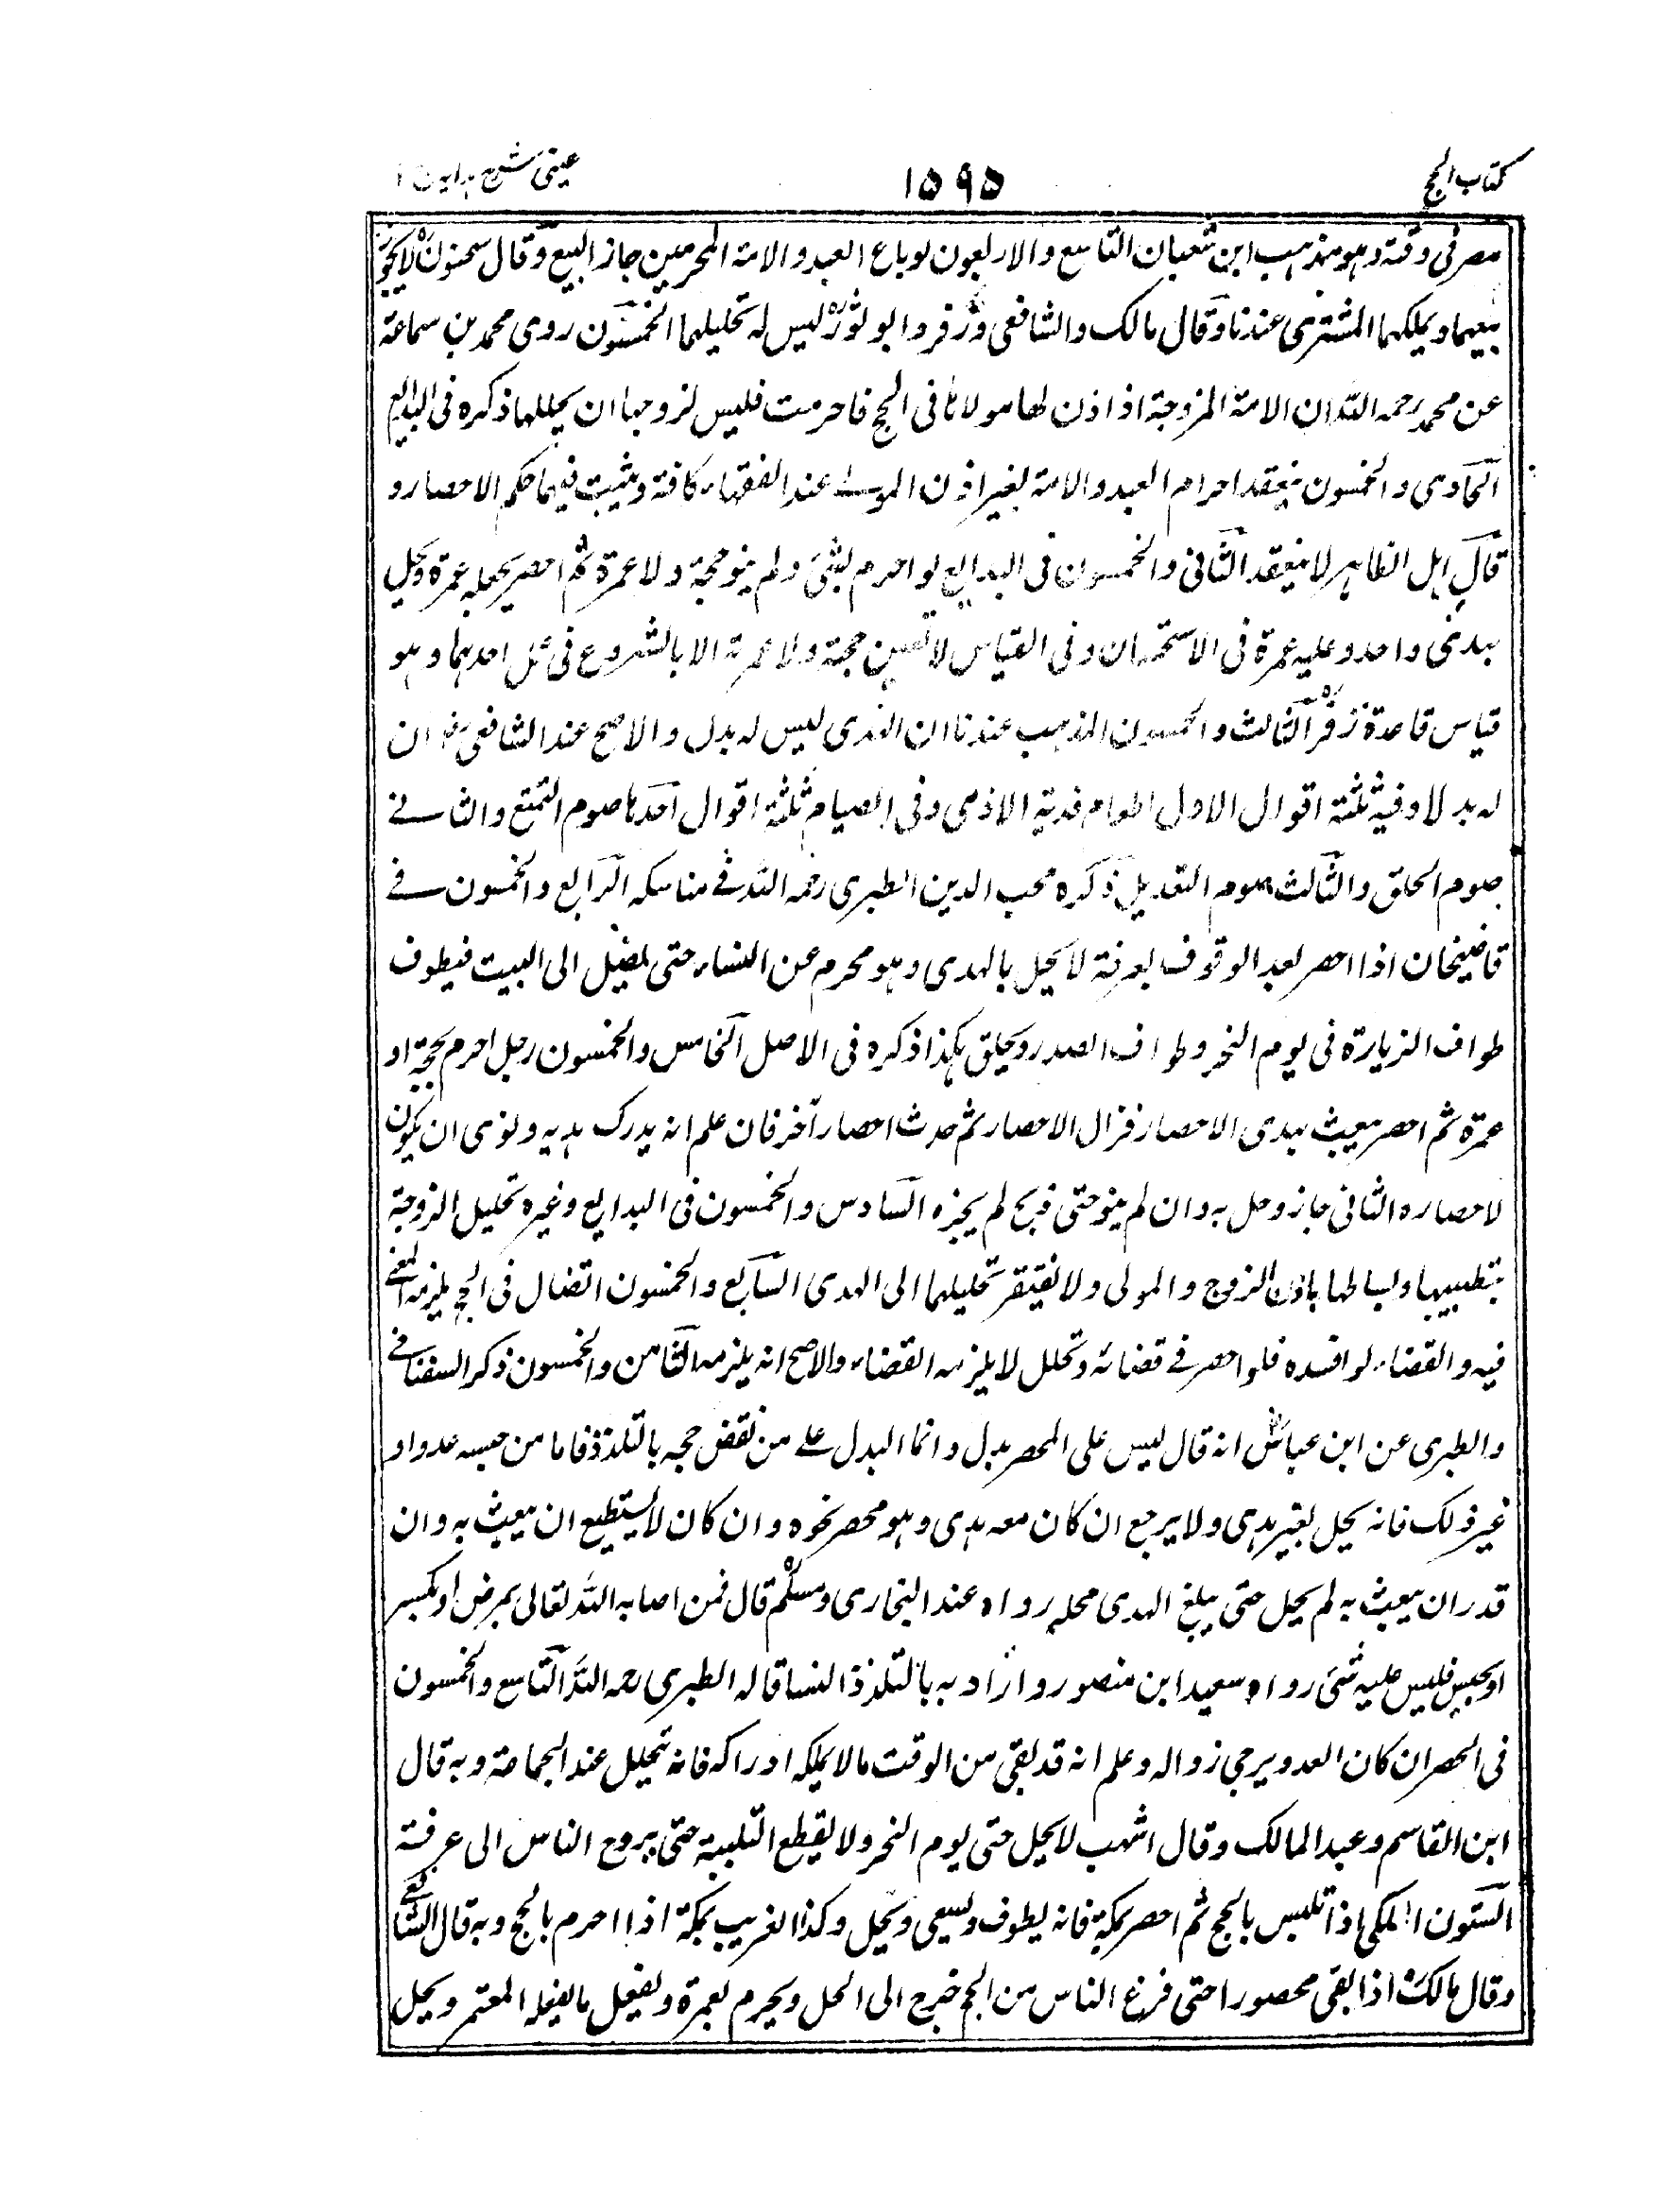 كتاب الحج
١٥٩٥
عينى شرح هدايه
مصر فى وقته وهو مذهب ابن شعبان التاسع والاربعون لو باع العبد والامة المحرمين جاز البيع وقال سحنون لا يجوز
بيعهما ويملكهما المشترى عندنا وقال مالك والشافعى وزفر وابو ثور ليس له تحليلهما الخمسون روى محمد بن سماعة
عن محمد رحمه الله ان الامة المزوجة اذا اذن لها مولاها فى الحج فاحرمت فليس لزوجها ان يحللها ذكره فى البدايع
الحادى والخمسون ينعقد احرام العبد والامة بغير اذن المولى عند الفقهاء كافة ويثبت فيهما حكم الاحصار و
قال اهل الظاهر لا ينعقد الثانى والخمسون فى البدايع لو احرم بشئ ولم ينو حجة ولا عمرة ثم احصر يجعله عمرة ويحل
بهدى واحد وعليه عمرة فى الاستحسان وفى القياس لا تتعين حجة ولا عمرة الا بالشروع فى عمل احدهما وهو
قياس قاعدة زفر الثالث والخمسون المذهب عندنا ان الهدى ليس له بدل والاصح عند الشافعى ان
له بدلا وفيه ثلثة اقوال الاول اطعام فدية الاذى وفى الصيام ثلثة اقوال احدها صوم التمتع والثانى
صوم الحلق والثالث صوم التعديل ذكره محب الدين الطبرى رحمه الله فى مناسكه الرابع والخمسون فى
قاضيخان اذا احصر بعد الوقوف بعرفة لا يحل بالهدى وهو محرم عن النساء حتى يصل الى البيت فيطوف
طواف الزيارة فى يوم النحر وطواف الصدر ويحلق هكذا ذكره فى الاصل الخامس والخمسون رجل احرم بحجة او
عمرة ثم احصر فبعث بهدى الاحصار فزال الاحصار ثم حدث احصار آخر فان علم انه يدرك هديه ونوى ان يكون
لاحصاره الثانى جاز وحل به وان لم ينو حتى ذبح لم يجزه السادس والخمسون فى البدايع وغيره تحليل الزوجة
بتطييبها ولباسها باذن الزوج والمولى ولا يفتقر تحليلهما الى الهدى السابع والخمسون القضاء فى الحج يلزمه المضى
فيه والقضاء لو افسده فلو احصر فى قضائه وتحلل لا يلزمه القضاء والاصح انه يلزمه الثامن والخمسون ذكر السغناقى
والطبرى عن ابن عباس انه قال ليس على المحصر بدل وانما البدل على من نقض حجه بالتلذذ فاما من حبسه عدو او
غير ذلك فانه يحل بغير هدى ولا يرجع ان كان معه هدى وهو محصر نحره وان كان لا يستطيع ان يبعث به وان
قدر ان يبعث به لم يحل حتى يبلغ الهدى محله رواه عند البخارى ومسلم قال فمن اصابه الله تعالى بمرض او بكسر
او بحبس فليس عليه شئ رواه سعيد ابن منصور واراد به بالتلذذ النسا قاله الطبرى رحمه الله التاسع والخمسون
فى الحصر ان كان العدو يرجى زواله وعلم انه قد بقى من الوقت ما لا يملكه ادراكه فانه يتحلل عند الجماعة وبه قال
ابن القاسم وعبد المالك وقال اشهب لا يحل حتى يوم النحر ولا يقطع التلبية حتى يروح الناس الى عرفة
الستون المكى اذا تلبس بالحج ثم احصر بمكة فانه يطوف ويسعى ويحل وكذا الغريب بمكة اذا احرم بالحج وبه قال الشافعى
وقال مالك اذا بقى محصورا حتى فرغ الناس من الحج خرج الى الحل ويحرم بعمرة ويفعل ما يفعله المعتمر ويحل